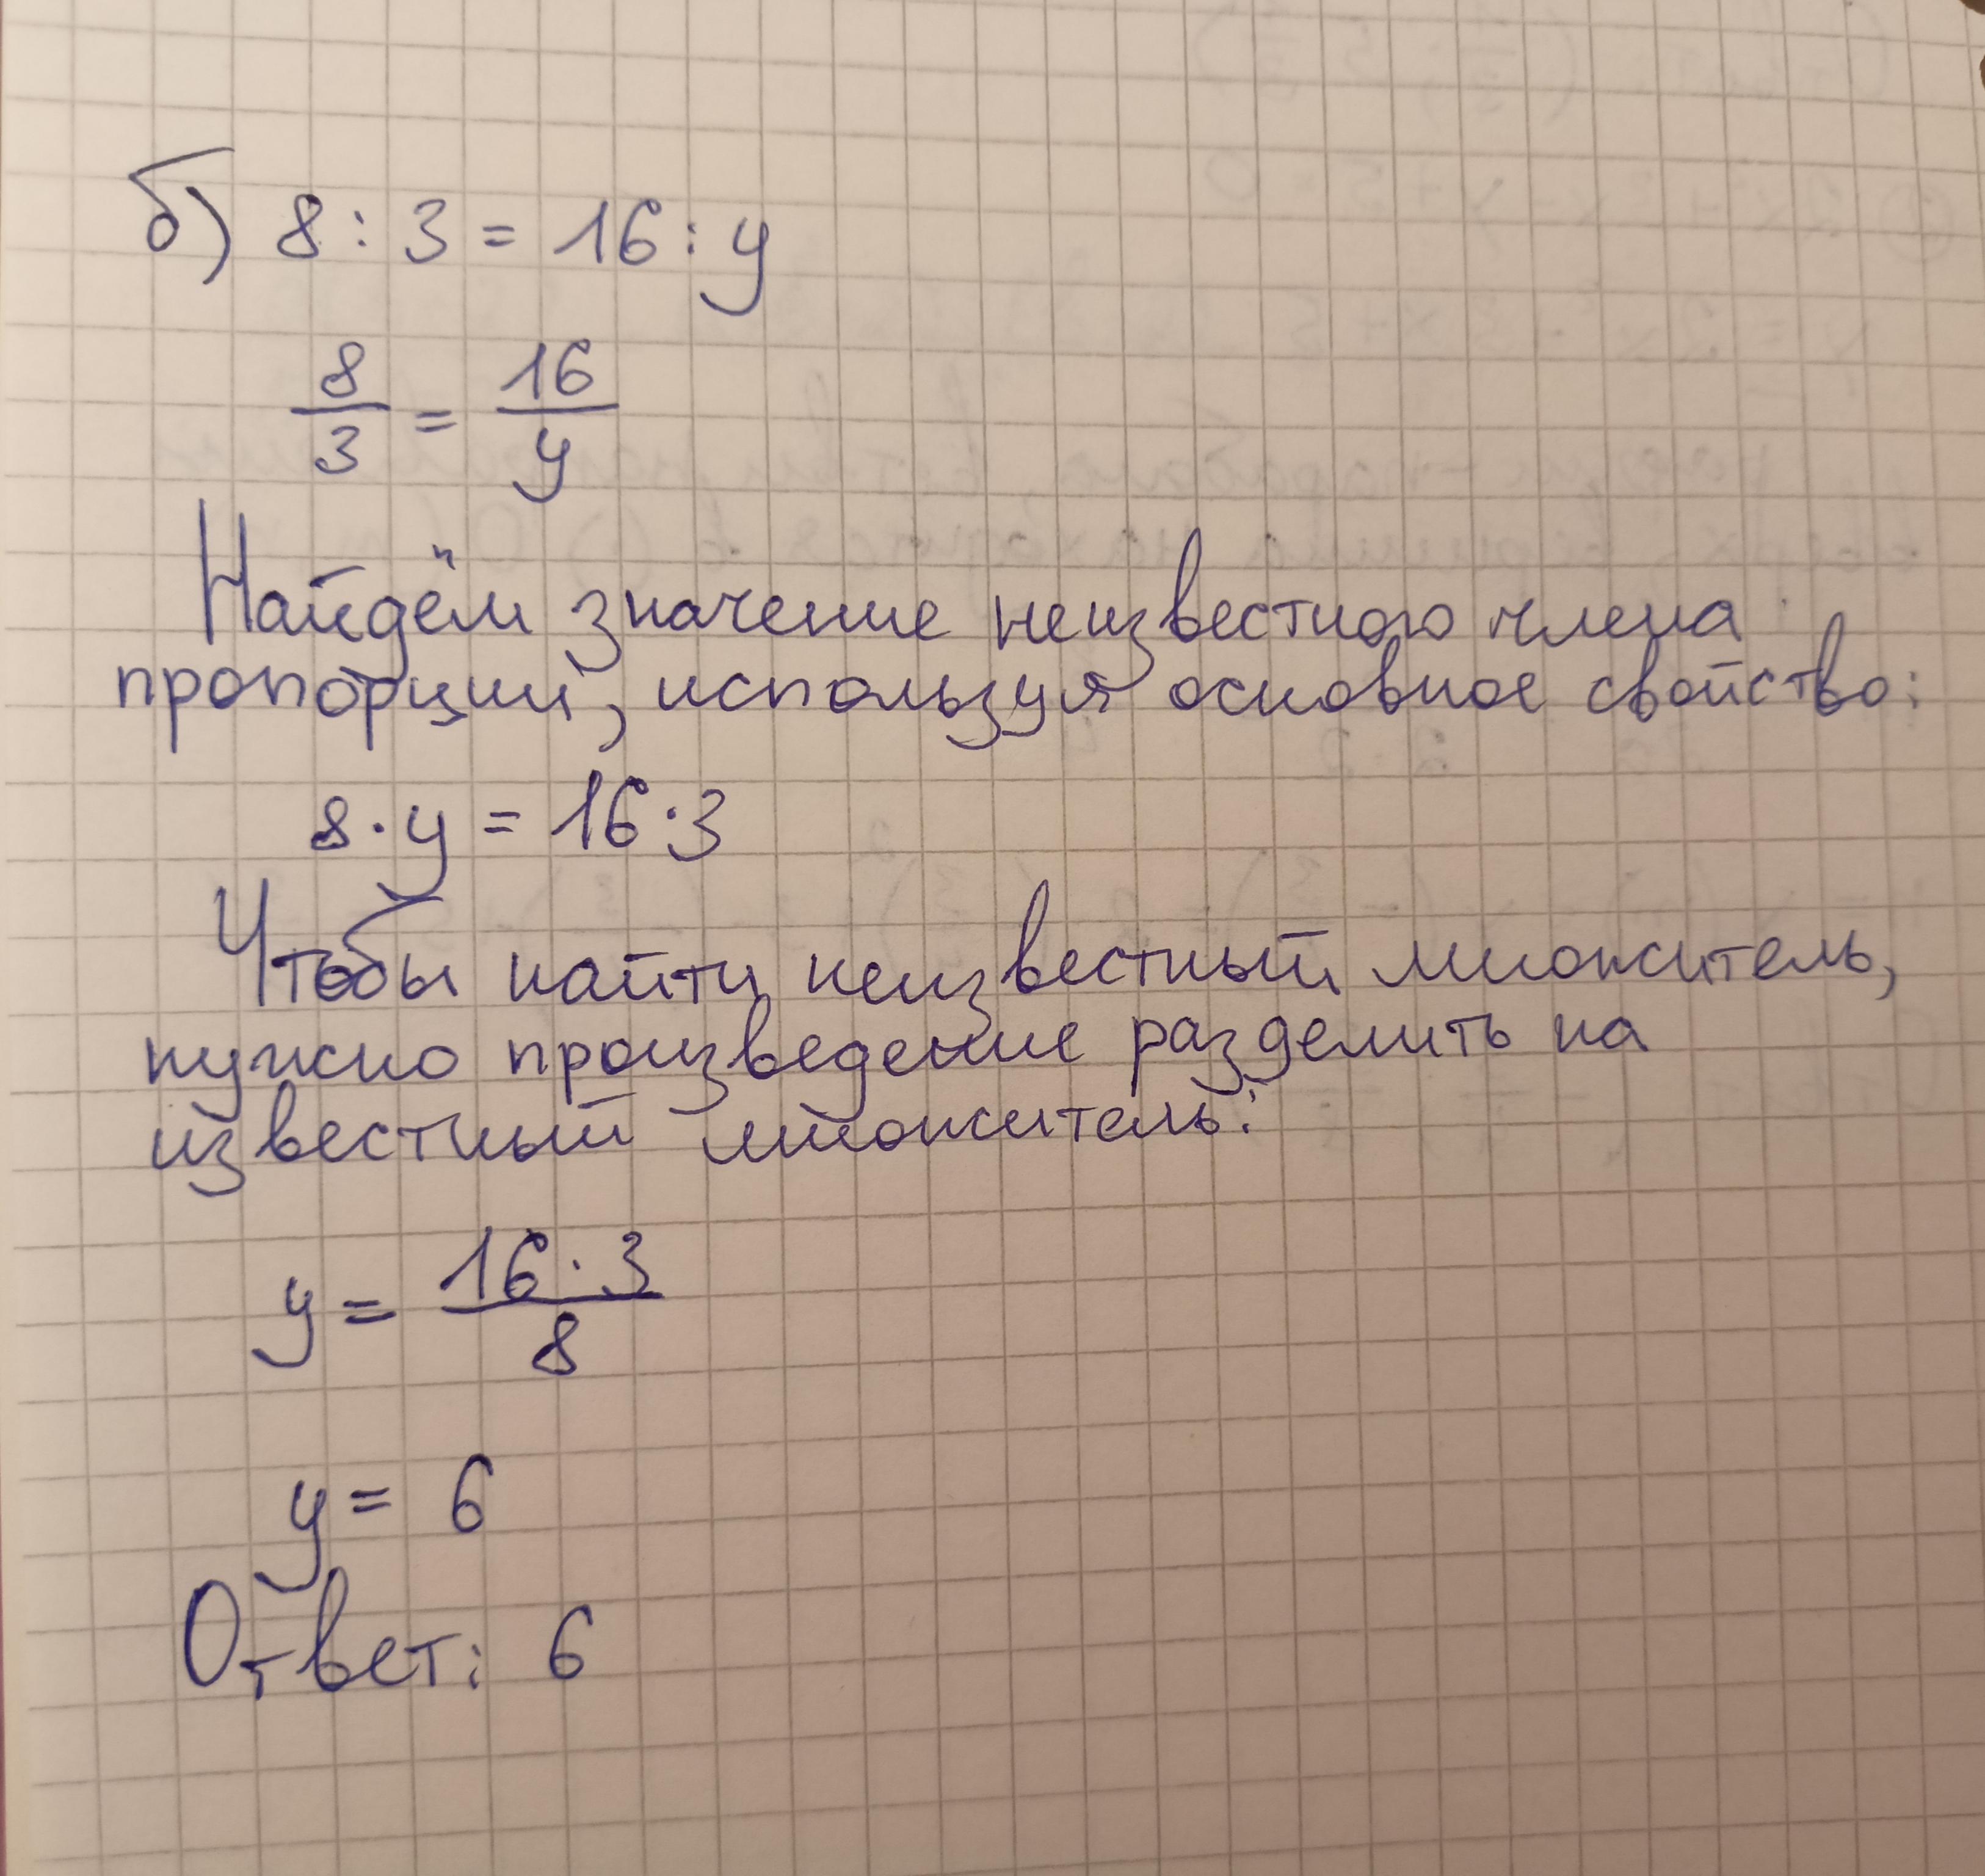 б) 8 : 3 = 16 : y
8/3 = 16/y
Найдём значение неизвестного члена
пропорции, используя основное свойство:
8 · y = 16 · 3
Чтобы найти неизвестный множитель,
нужно произведение разделить на
известный множитель:
y = 16 · 3 / 8
y = 6
Ответ: 6